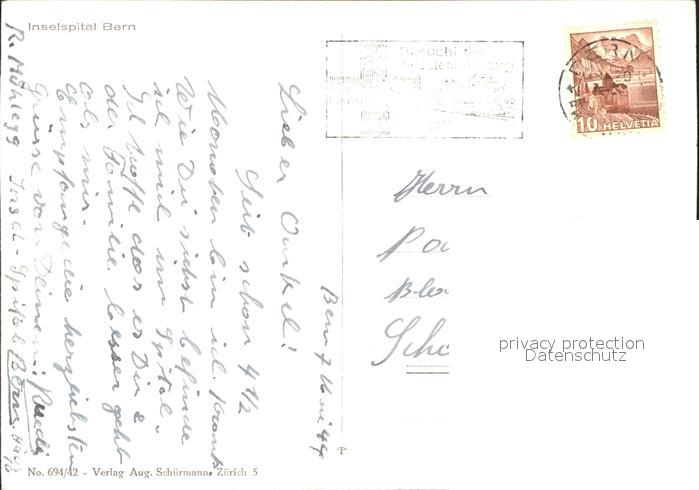 Inselspital Bern
Bern 7 Mai 44
Lieber Onkel!
Seit schon 4 1/2
Monaten bin ich krank
Wie Du siehst befinde
ich mich im Spital.
Ich hoffe das es Dir &
der Familie besser geht
als mir.
Empfange die herzlichsten
Grüsse von Deinem Ruedi
R. Insel-Spital Bern
Herrn
BERN
10 HELVETIA
privacy protection
Datenschutz
No. 694/42 - Verlag Aug. Schürmann, Zürich 5